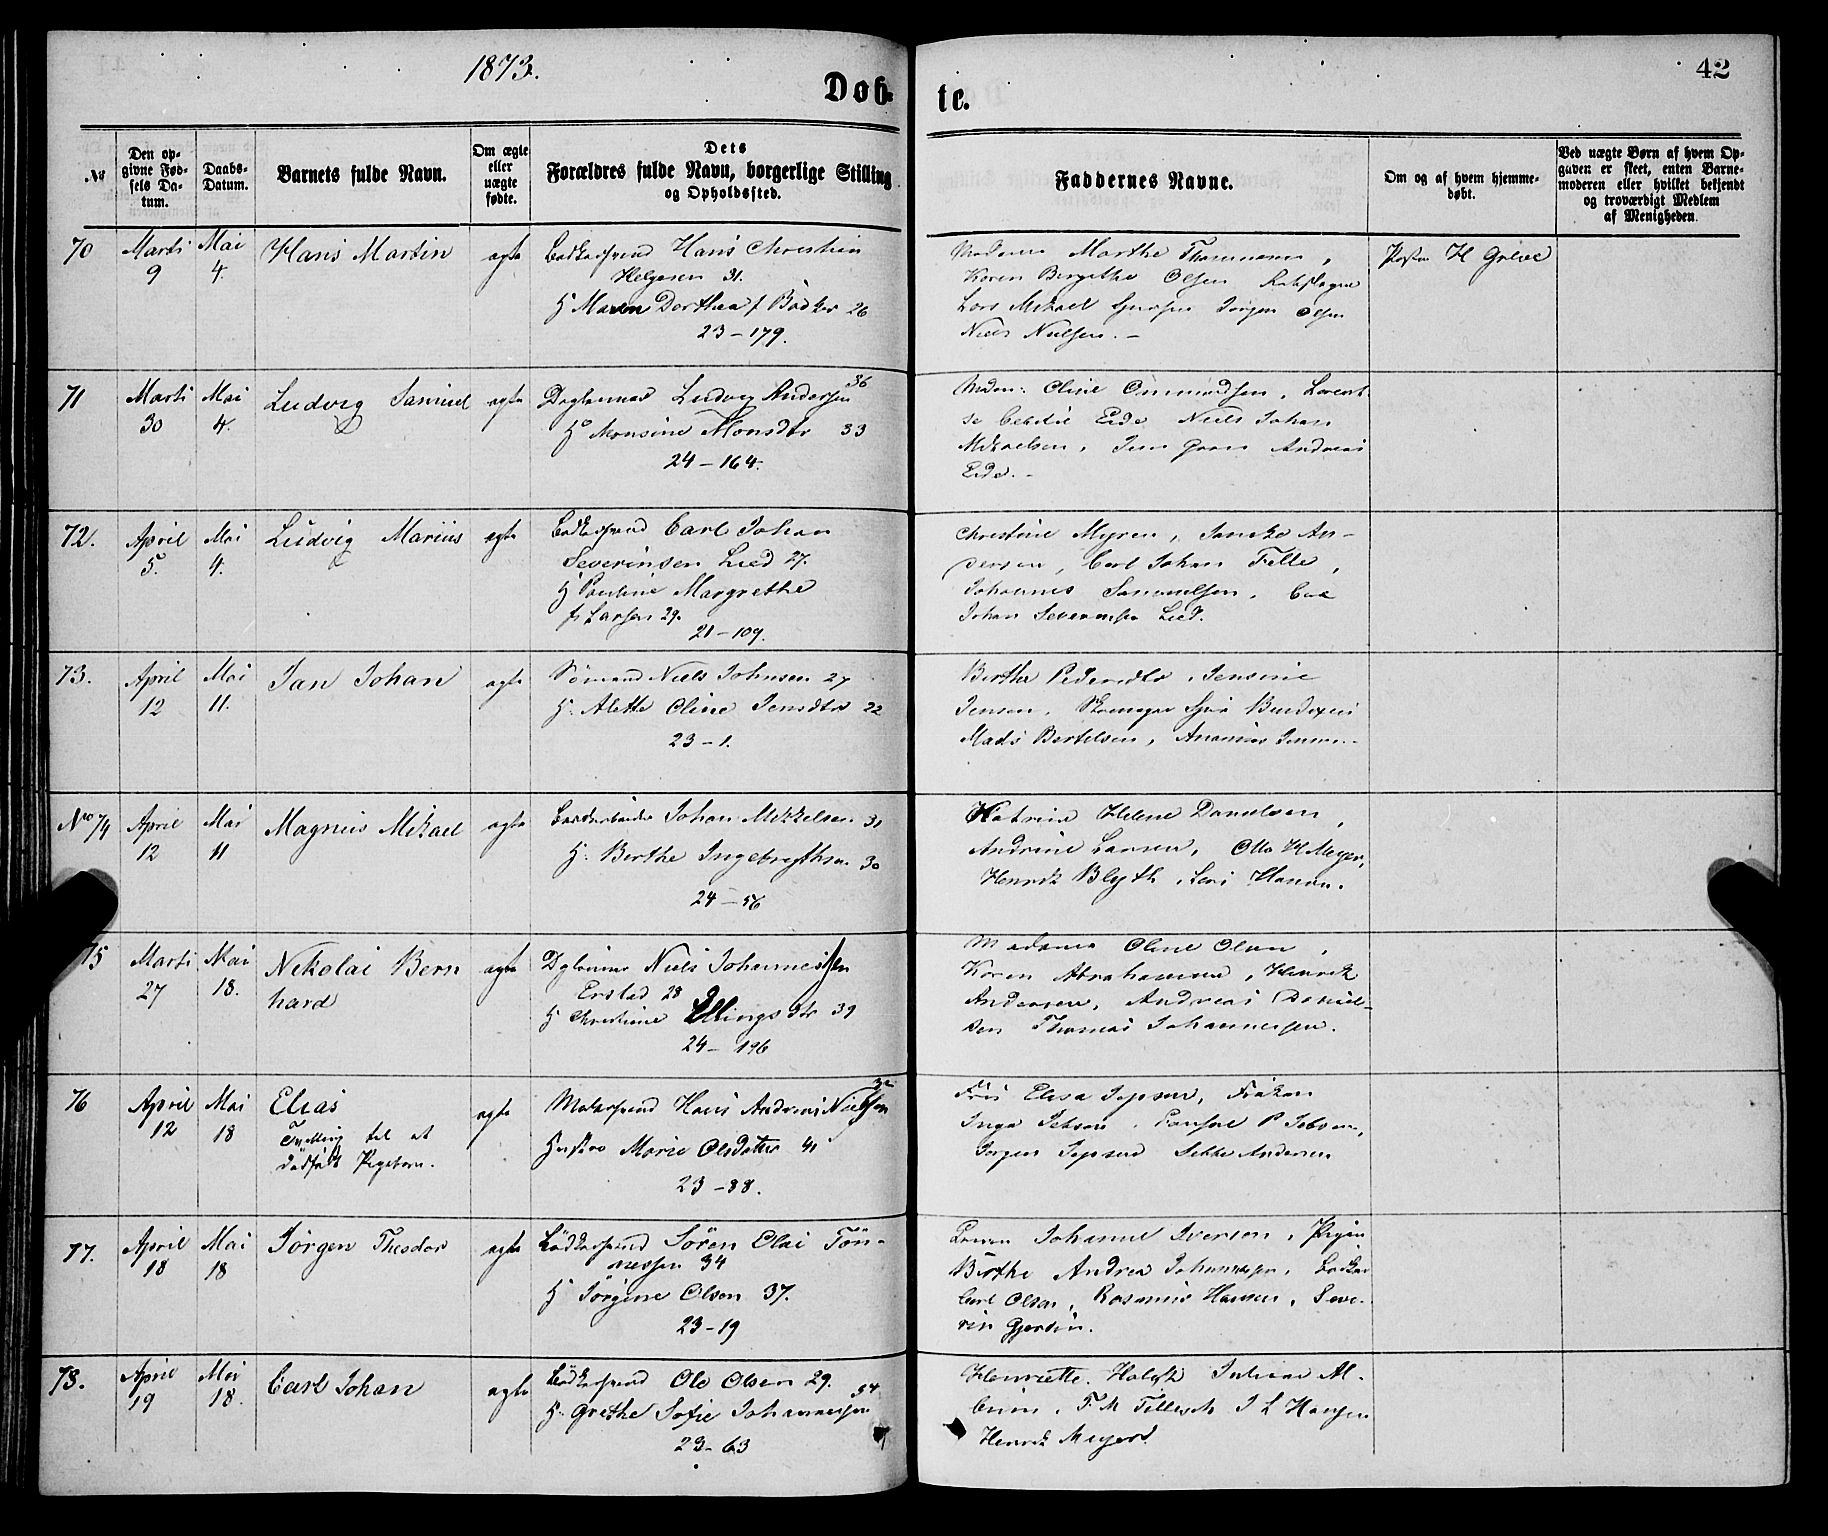 1873.
42
Døb-
te.
No
Den op-
givne Fød-
sels Da-
tum.
Daabs-
Datum.
Barnets fulde Navn.
Om ægte
eller
uægte
fødte.
Dets
Forældres fulde Navn, borgerlige Stilling
og Opholdssted.
Faddernes Navne.
Om og af hvem hjemme-
døbt.
Ved uægte Børn af hvem Op-
gaven er skeet, enten Barne-
moderen eller hvilket bekjendt
og troværdigt Medlem
af Menigheden.
70
Marti
9
Mai
4.
Hans Martin
ægte
Bødkersvend Hans Christian
Helgesen 31.
H Maren Dorthea f Bødker 26
23-179.
Madame Marthe
Karen Bergithe Olsen
Lars Mikael Jørgen Olsen
Niels Nielsen.-
H Greve
71
Marti
30
Mai
4.
Ludvig Samuel
ægte
Daglønner Ludvig Andersen 36
H Monsine Monsdtr 33
24-164.
Madm: Oline Lorent-
se Eide Niels Johan
Mikaelsen, Andreas
Eide.-
72.
April
5.
Mai
4.
Ludvig Marius
ægte
Bødkersvend Carl Johan
Severinsen Lied 27.
H Pauline Margrethe
f. Larsen 29.
21-109.
Christine Myren, An-
dersen, Carl Johan Felle,
Johannes Samuelsen, Carl
Johan Severinsen Lied.
73.
April
12
Mai
11.
Jan Johan
ægte
Sømand Niels Johnsen 27
H. Alette Oline Jensdtr 22
23-1.
Berthe Pedersdtr, Jensine
Jensen, Bendixen
Mads Bertelsen,
No 74
April
12
Mai
11
Magnus Mikael
ægte
Johan Mikkelsen 31
H. Berthe Ingebrigthsen 30
24-56
Katrine Helene Danielsen,
Andrine Larsen, Otto H Meyer,
Henrik Blyth, Hansen.
75
Marti
27
Mai
18.
Nikolai Bern
hard
ægte
Dglønner Niels Johannessen
Erstad 28
H Christine Ellingsdtr 39
24-196
Madame Oline Olsen,
Karen Abrahamsen, Henrik
Andersen, Andreas Daniel-
sen Thomas Johannesen.
76
April
12
Mai
18
Elias
Tvilling til et
dødfødt Pigebarn.
ægte
Malersvend Hans Andreas Nielsen
Hustro Marie Olsdatter 41
23-88.
Elisa Jepsen, Frøken
Inga Jebsen, Consul P Jebsen,
Jørgen Jepsen Andersen
77.
April
18
Mai
18
Jørgen Theodor
ægte
Bødkersvend Sören Elai Tön-
nessen 34
H Jörgine Olsen 37.
23-19
Johanne Iversen, Pigen
Berthe Andrea Johannesen, Bødker
Carl Olsen, Rasmus Hansen, Seve-
rin Gjertsen.
78.
April
19
Mai
18.
Carl Johan
ægte
Bødkersvend Ole Olsen 29.
H. Grethe Sofie Johannesen 34
23-63
Henriette
F. M J L Hansen
Henrik Meyer.